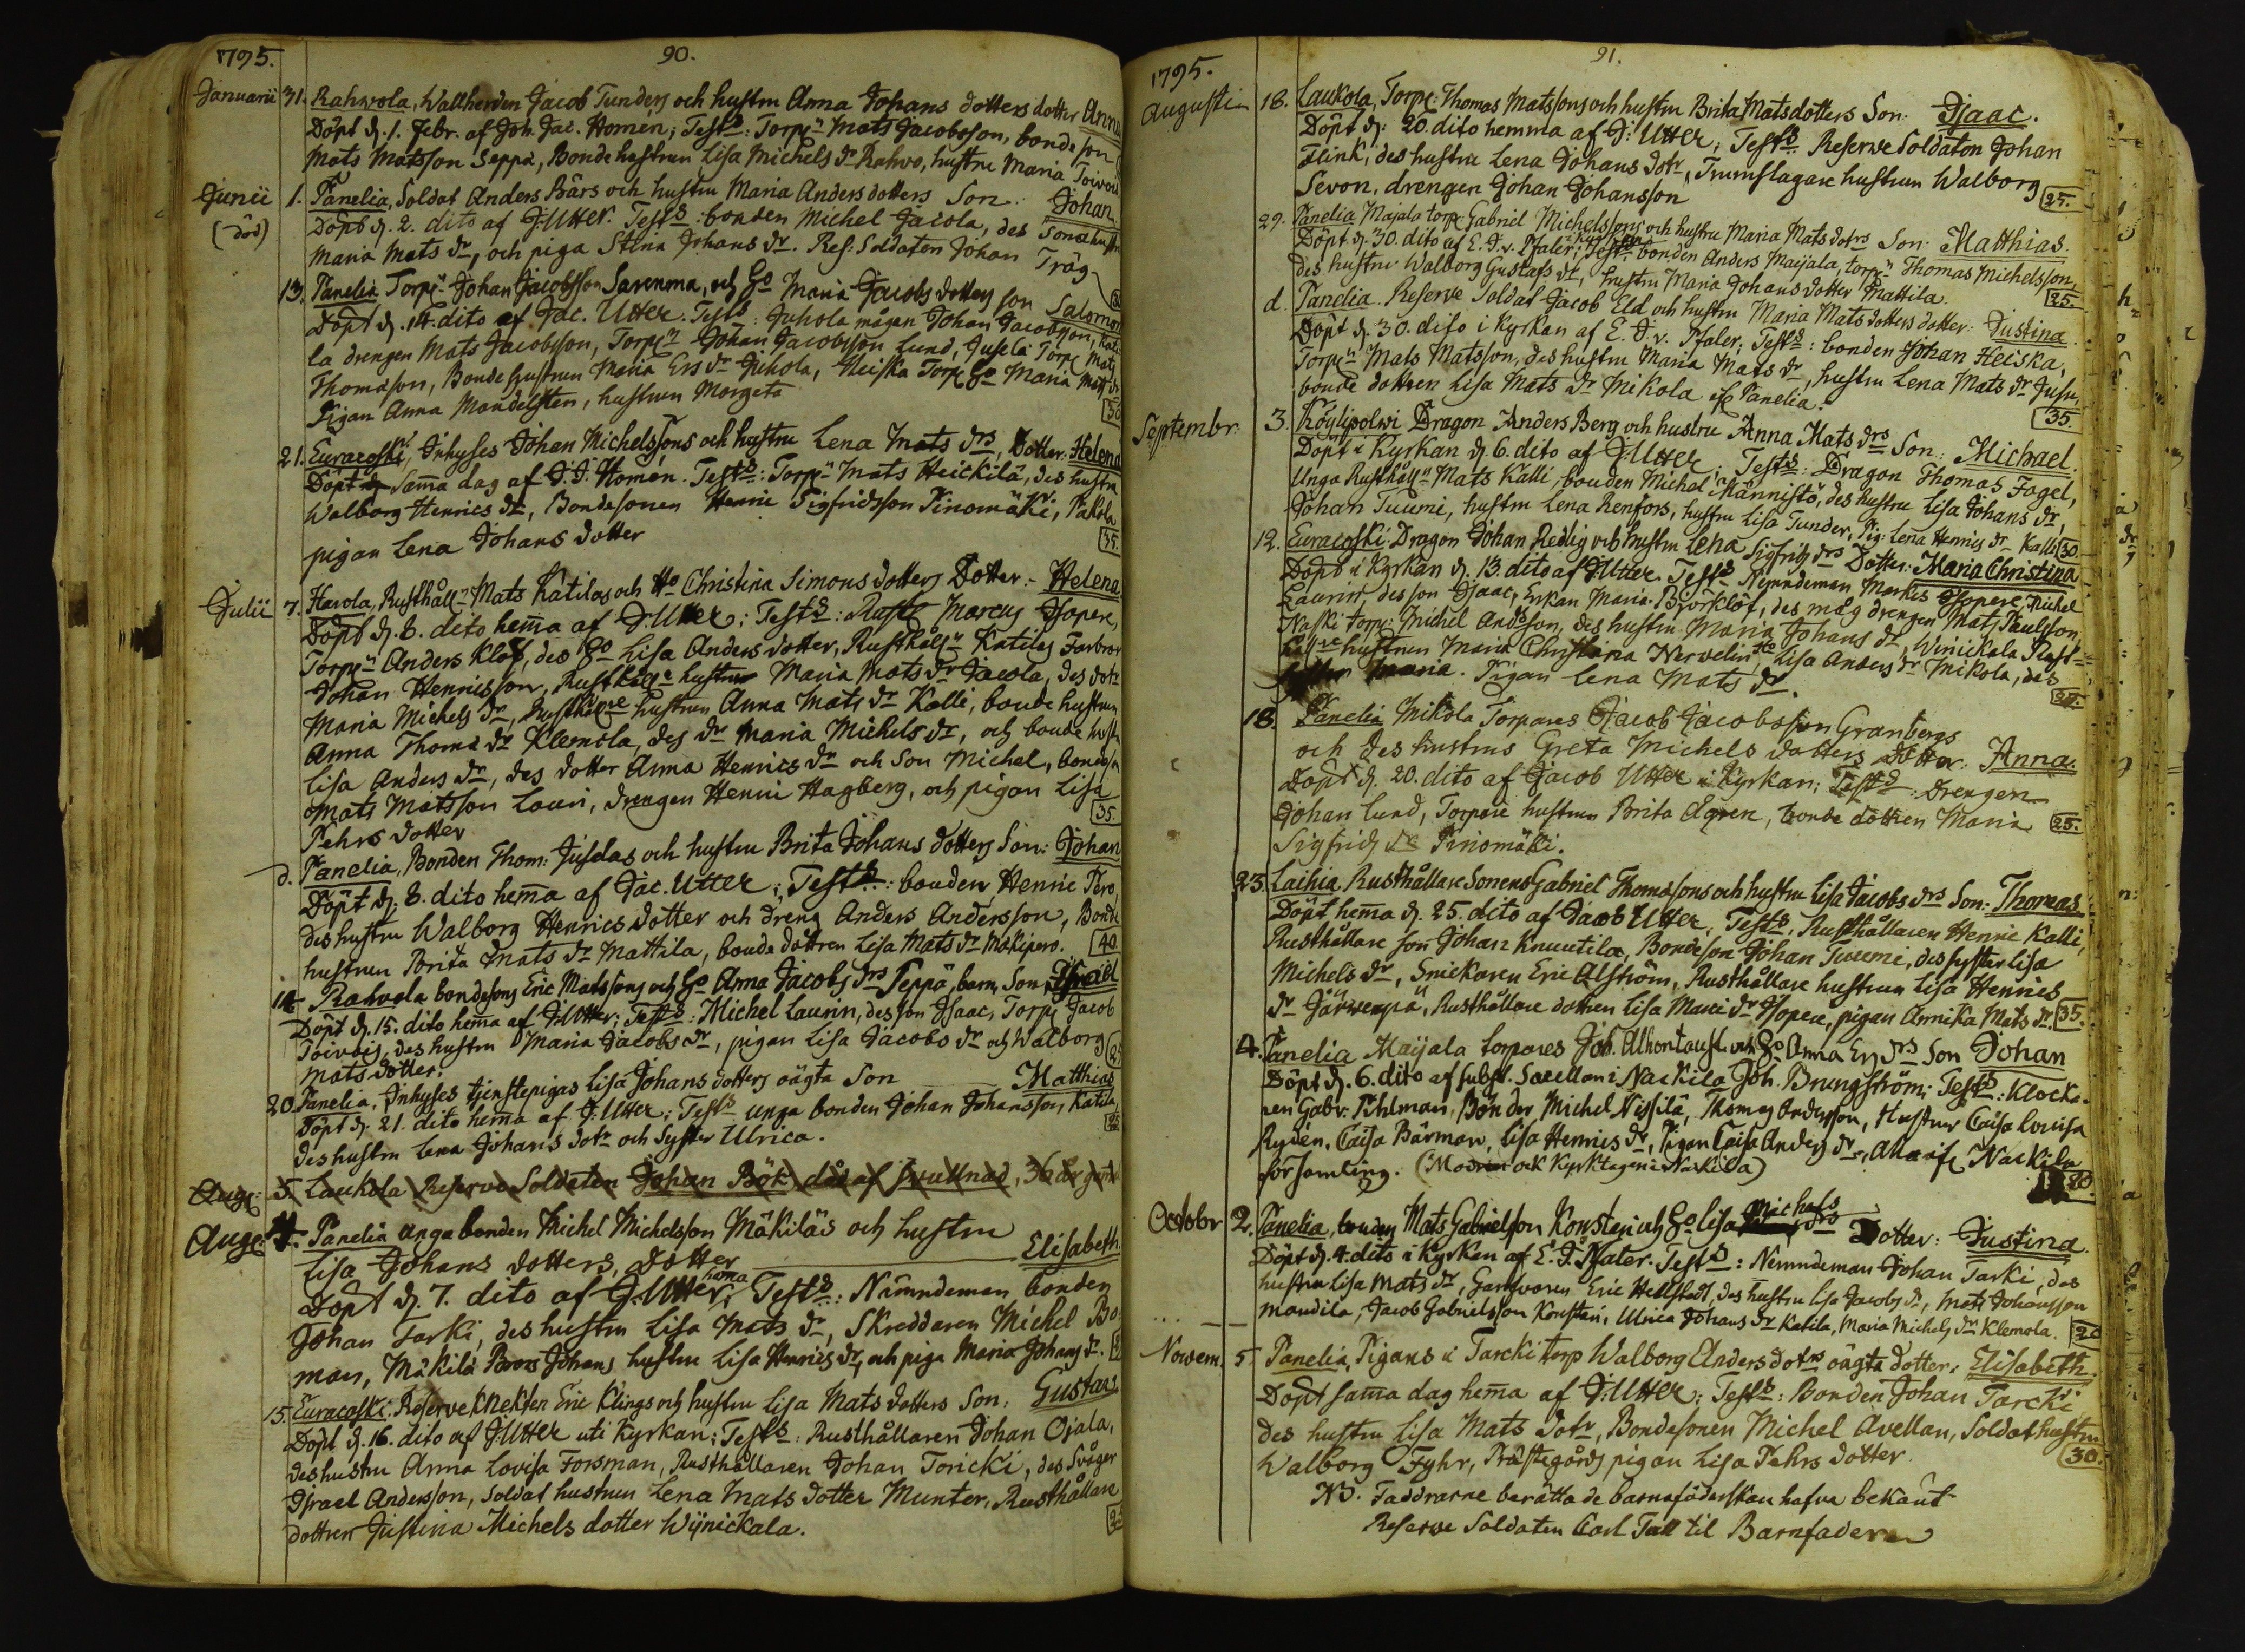 1795.
90.
Januarii 31. Rahvola, Wallherden Jacob Tunders och hustru Anna Johans dotters dotter Anna
Döpt d. 1. Febr. af Joh. Jac. Homén; Test: Torp:n Mats Jacobsson, bonde son
Mats Matsson Seppä, Bonde hustrun Lisa Michels dr Rahvo, hustru Maria Toivois
Junii 1. Panelia, Soldat Anders Bärs och hustru Maria Anders dotters Son: Johan
(död) Döpt d. 2. dito af J: Utter. Test: bonden Michel Jacola, des Sonahustru
Maria Mats dr, och piga Stina Johans dr. Res. Soldaten Johan Träg
13. Panelia Torp:n Johan Jacobsson Savenma, och Ho Maria Jacobs dotters son Salomon
Döpt d. 14. dito af Jac. Utter. Test: Juhola mågen Johan Jacobsson, Kati
la drengen Mats Jacobsson, Torp:n Johan Jacobsson Lund, Jusela Torp: Mats
Thomasson, Bonde hustrun Maria Ers dr Juhola, Heiska Torp Ho Maria Mats dr
Pigan Anna Mandelsten, hustrun Margeta
21. Euracoski, Inhyses Johan Michelssons och hustru Lena Mats drs, Dotter: Helena
Döpt samma dag af J. J. Homén. Test: Torp:n Mats Heickilä, des hustru
Walborg Henrics dr, Bondesonen Henric Sigfridsson Pinomäki, Pakola
pigan Lena Johans dotter 35.
Julii 7. Harola, Rusthåll:n Mats Katilas och Ho Christina Simons dotters Dotter: Helena
Döpt d. 8. dito hemma af J: Utter; Test: Rusth Marcus Isopere,
Torp:n Anders Klöf, des Ho Lisa Anders dotter, Rusthåll:n Katilas Farbror
Johan Henricsson, Rusthåll:e hustrun Maria Mats dr Jacola, des dotr
Maria Michels dr, Rusthåll:re hustrun Anna Mats dr Kalli, bonde hustrun
Anna Thomæ dr Klemola, des dr Maria Michels dr, och bonde hustr
Lisa Anders dr, des dotter Anna Henrics dr och Son Michel, bondeson
Mats Matsson Lauri, drengen Henric Hagberg, och pigan Lisa
Pehrs dotter 35.
d. Panelia, Bonden Thom: Juselas och hustru Brita Johans dotters Son: Johan
Döpt d. 8. dito hemma af Jac. Utter; Test: bonden Henric Pero,
des hustru Walborg Henrics dotter och dreng Anders Andersson, Bonde
hustrun Brita Mats dr Mattila, bonde dottren Lisa Mats dr Mäkipero. 40.
14. Rahvola bondesons Eric Matssons och Ho Anna Jacobs drs Seppä, barn, Son: Israel
Döpt d. 15. dito hemma af J: Utter; Test: Michel Laurin, des son Isaac, Torp: Jacob
Toivois, des hustru Maria Jacobs dr, pigan Lisa Jacobs dr och Walborg
Mats dotter.
20. Panelia, Inhyses tjenstepigas Lisa Johans dotters oägta Son Matthias
Döpt d. 21. dito hemma af J: Utter; Test unga bonden Johan Johansson Katila,
des hustru Lena Johans dotr och Syster Ulrica.
Aug: 5. Laukola Reserve Soldaten Johan Bök död af svullnad, 36 år gml
Aug: 4. Panelia unga bonden Michel Michelsson Mäkiläs och hustru
Lisa Johans dotters, dotter Elisabeth.
Döpt d. 7. dito hema af J: Utter; Test: Nämndeman bonden
Johan Tarki, des hustru Lisa Mats dr, Skreddaren Michel Bo
man, Mäkilä Johans hustru Lisa Henrics dr, och piga Maria Johans dr.
15. Euracoski. Reserve Knekten Eric Klings och hustru Lisa Mats dotters Son: Gustav.
Döpt d. 16. dito af J: Utter uti Kyrkan; Test: Rusthållaren Johan Ojala,
des hustru Anna Lovisa Forsman, Rusthållaren Johan Toricki, des Svåger
Israel Andersson, Soldat hustrun Lena Mats dotter Munter, Rusthållare
dottren Justina Michels dotter Wijnickala.
1795.
91.
Augusti 18. Laukola, Torp: Thomas Matssons och hustru Brita Matsdotters Son: Isaac.
Döpt d: 20. dito hemma af J: Utter; Test: Reserve Soldaten Johan
Flink, des hustru Lena Johans dotr, Trumslagare hustrun Walborg
Sevon, drengen Johan Johansson 25.
29. Panelia Majala torp: Gabriel Michelssons och hustru Maria Mats dotrs Son: Matthias.
Döpt d. 30. dito af E. J. v. Pfaler; Test: bonden Anders Maijala, torp:n Thomas Michelsson,
des hustru Walborg Gustafs dr, hustru Maria Johans dotter Mattila. 25.
d. Panelia. Reserve Soldat Jacob Eld och hustru Maria Mats dotters dotter: Justina.
Döpt d. 30. dito i Kyrkan af E. J. v. Pfaler. Test: bonden Johan Heiska,
Torp:n Mats Matsson, des hustru Maria Mats dr, hustru Lena Mats dr Jusu,
bonde dottren Lisa Mats dr Mikola if: Panelia. 35.
Septembr: 3. Köylipolvi Dragon Anders Berg och hustru Anna Mats drs Son: Michael.
Döpt i Kyrkan d. 6. dito af J: Utter; Test: Dragon Thomas Fogel,
Unga Rusthåll:n Mats Kalli, bonden Michel Männistö, des hustru Lisa Johans dr,
Johan Tuumi, hustru Lena Renfors, hustru Lisa Tunder, Pig: Lena Henrics dr Kalli 30.
12. Euracoski: Dragon Johan Redlig och hustru Lena Sigfrids drs Dotter: Maria Christina
Döpt i Kyrkan d. 13. dito af J: Utter. Test Nemndeman Markus Isopere, Michel
Laurin des son Isaac, Enkan Maria Björklöf, des måg drengen Mats Paulsson,
Naski torp: Michel Andsson, des hustru Maria Johans dr, Winickala Rust-
håll:re hustrun Maria Christina Nervelin, Ho Lisa Anders dr Mikola, des
syster Maria. Pigan Lena Mats dr. 25.
18. Panelia Mikola Torpares Jacob Jacobsson Granbergs
och des hustrus Greta Michels dotters dotter: Anna.
Döpt d. 20. dito af Jacob Utter i Kyrkan; Test: Drengen
Johan Lund, Torpare hustrun Brita Agren, bonde dottren Maria 25.
Sigfrids dr Pinomäki.
23. Laihia Rusthållare Sonens Gabriel Thomæsons och hustru Lisa Jacobs drs Son: Thomas.
Döpt hemma d. 25. dito af Jacob Utter; Test: Rusthållaren Henric Kalli,
Rusthållare son Johan Knuutila, Bondeson Johan Tuumi, des syster Lisa
Michels dr, Snickaren Eric Alström, Rusthållare hustrun Lisa Henrics
dr Järvenpä, Rusthållare dottren Lisa Marci dr Isopere, pigan Annika Mats dr. 35.
4. Panelia Maijala torpares Joh. och Ho Anna Ers drs Son Johan
Döpt d. 6. dito af Subst. Sacellan i Nackila Joh. Brungström; Test: Klocka-
ren Gabr: Pihlman, Bönder Michel Nissilä, Thomas Andersson, Hustrur Caisa Lovisa
Rydén, Caisa Bärman, Lisa Henrics dr, Pigan Caisa Anders dr, Alla if: Nackila
församling. (Modren ock Kyrktagen i Nackila) 20.
Octobr 2. Panelia, bonden Mats Gabrielsson Konsten och Ho Lisa Michels drs Dotter: Justina.
Döpt d. 4. dito i Kyrkan af E. J. Pfaler. Test: Nemndeman Johan Tarki, des
hustru Lisa Mats dr, Garfvaren Eric Hellstedt, des hustru Lisa Jacobs dr, Mats Johansson
Mandila, Jacob Gabrielsson Konstari, Ulrica Johans dr Katila, Maria Michels dr Klemola.
Novem. 5. Panelia, Pigans i Tarcki torp Walborg Anders dotrs oägta dotter: Elisabeth.
Döpt samma dag hemma af J: Utter; Test: Bonden Johan Tarcki
des hustru Lisa Mats dotr, Bondesonen Michel Avellan, Soldat hustru
Walborg Fyhr, Prästegårds pigan Lisa Pehrs dotter. 30.
NB. Faddrarne berätta de barnaföderskan hafva bekänt
Reserve Soldaten Carl Tall til Barnfadern